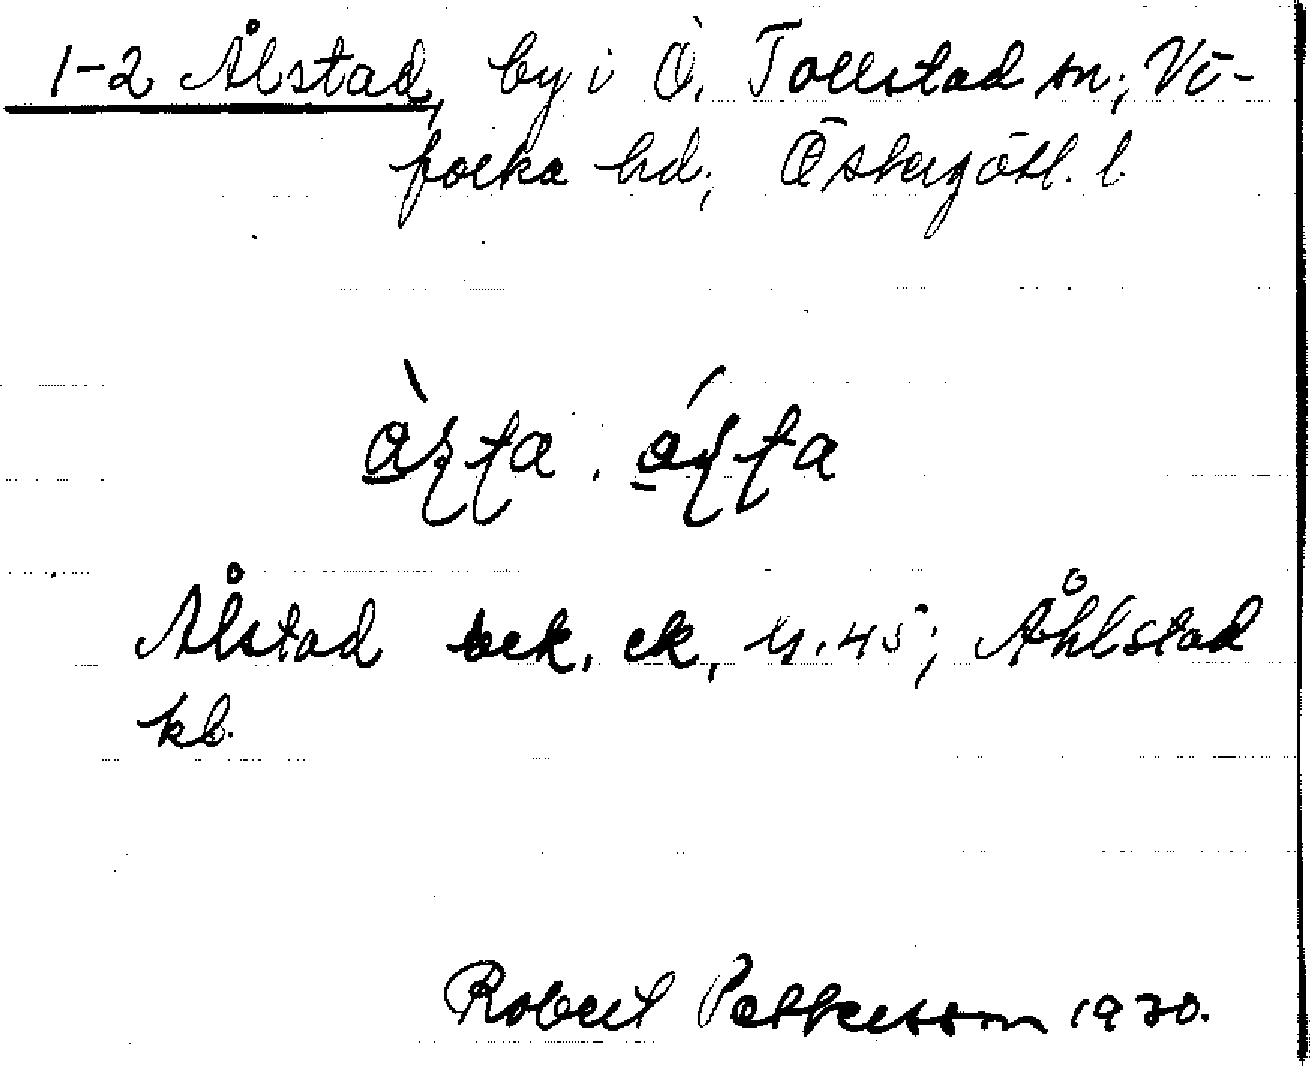 1-2 Ålstad, by i Ö. Tollstad sn, Vi-
folka hd, Östergötl. l.
Ålstad ek, Åhlstad
kb.
Robert Pettersson 1930.